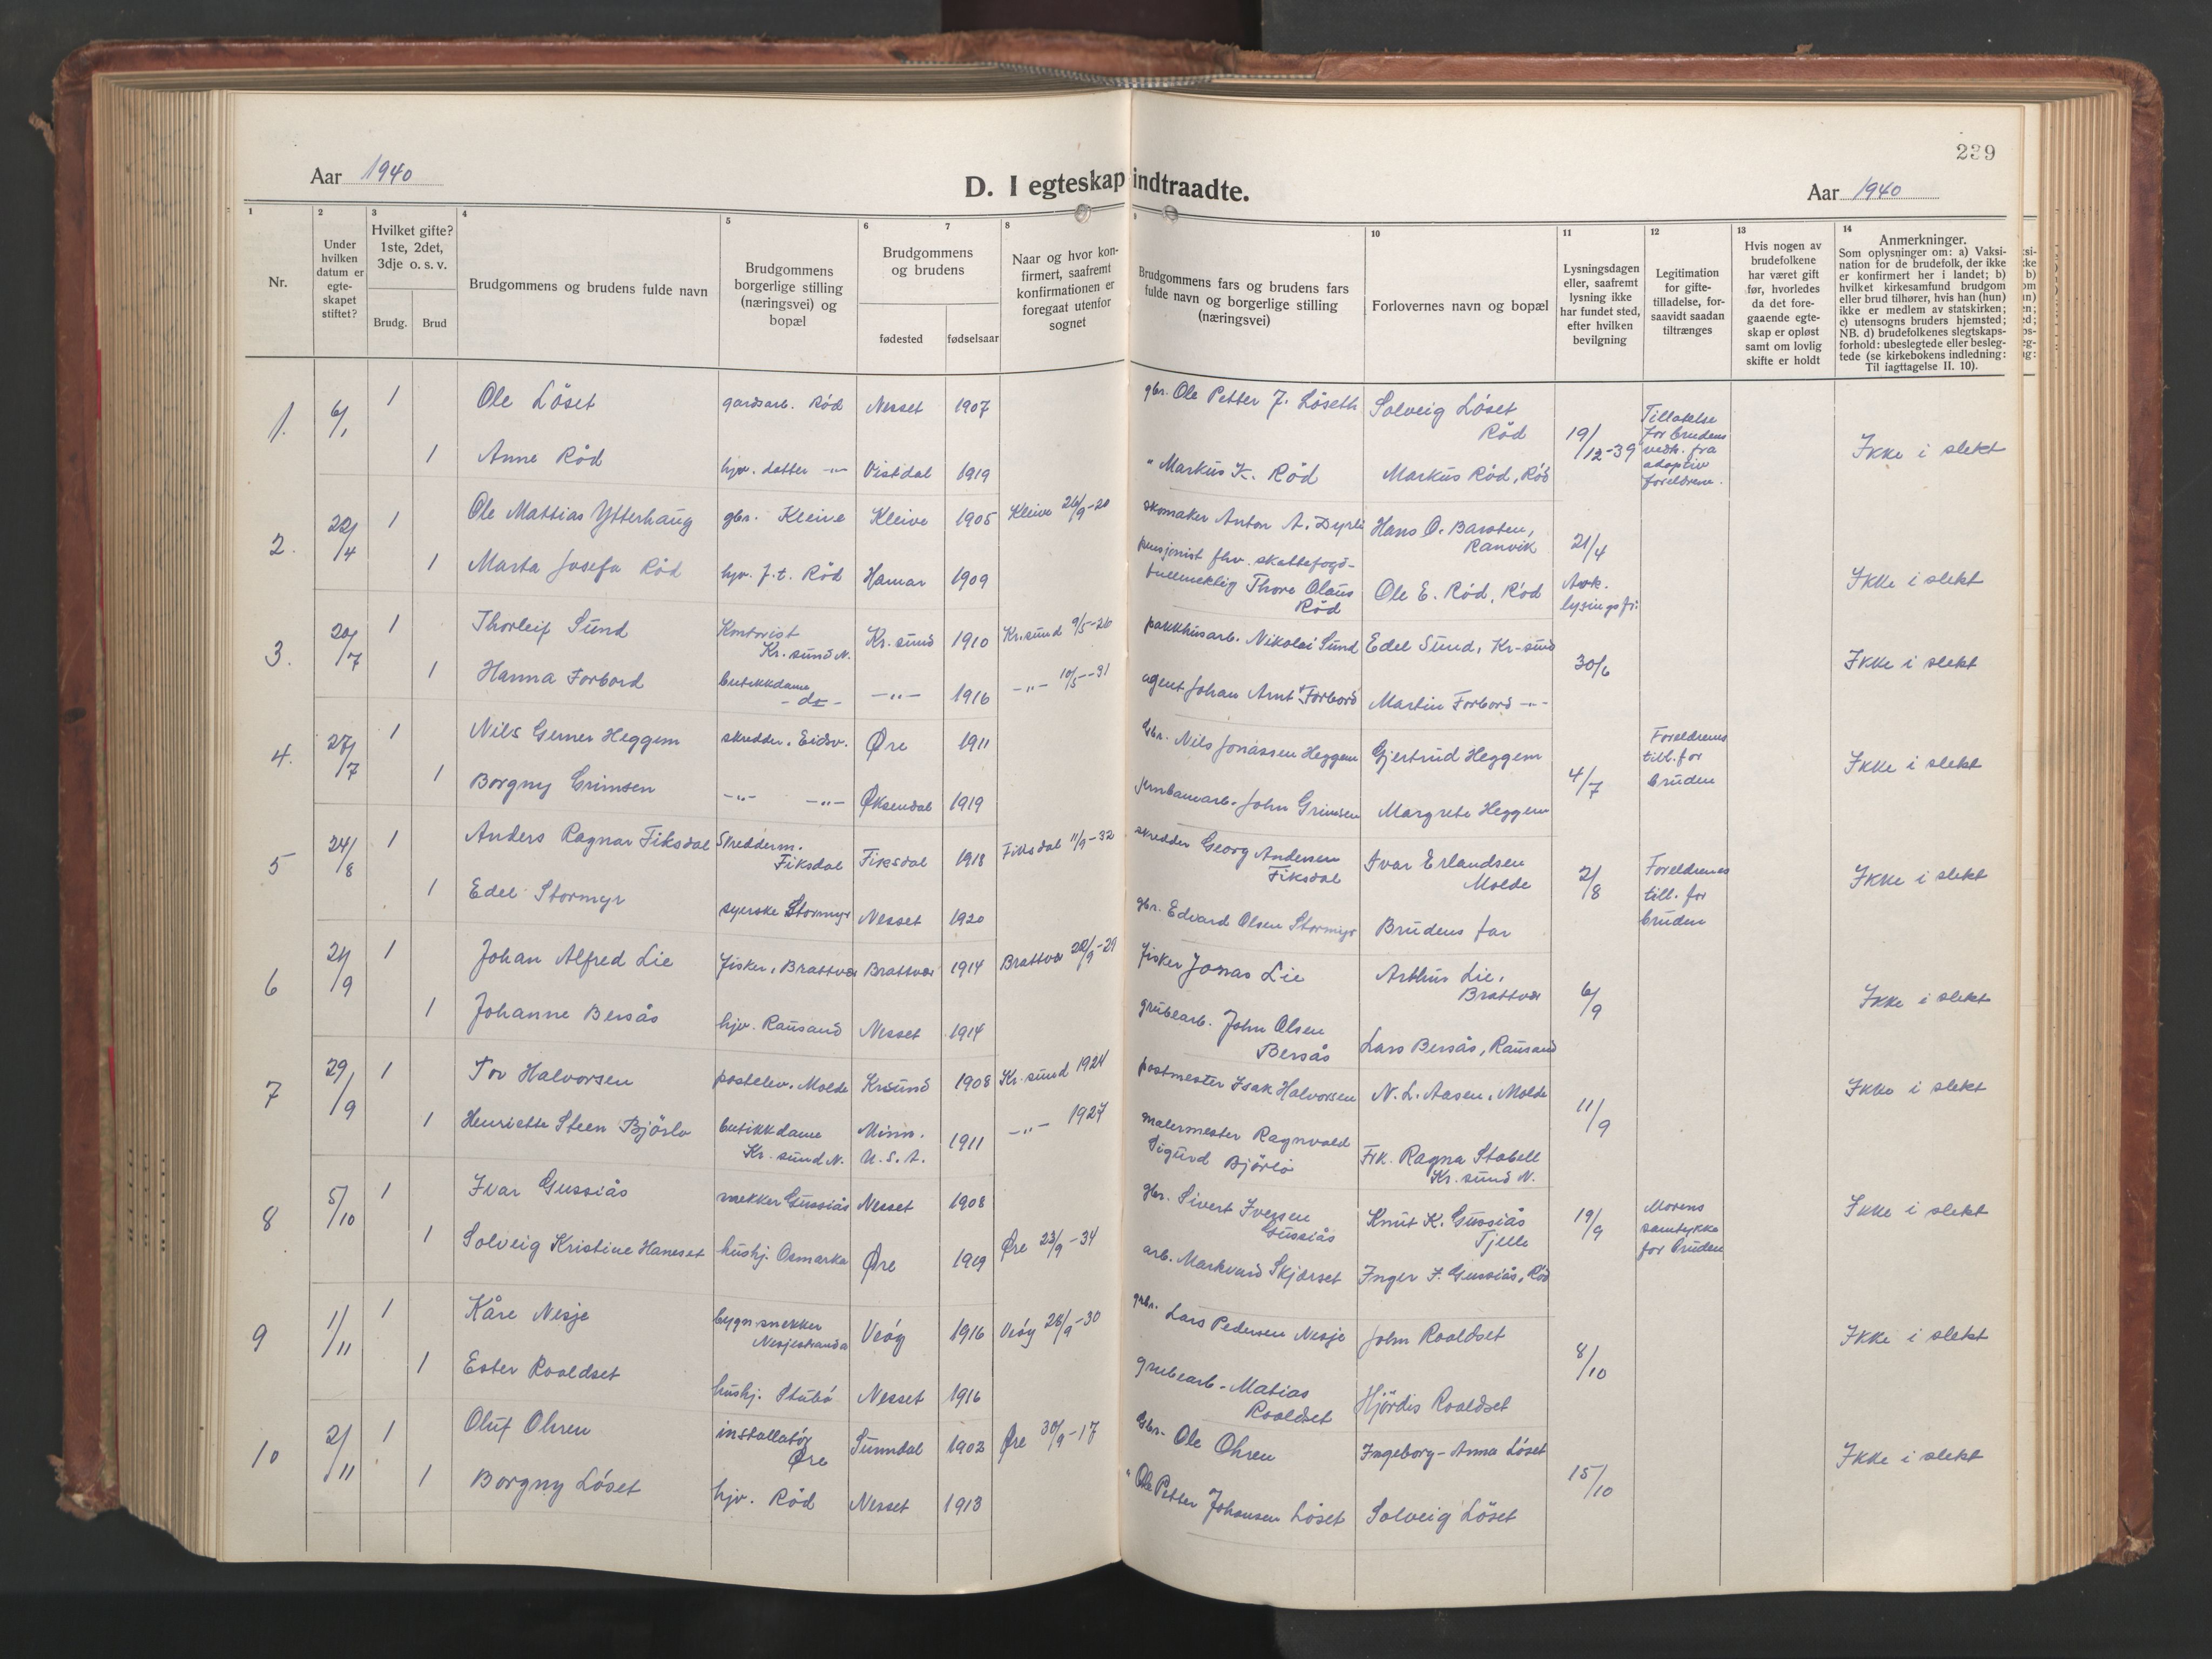 239
Aar 1940
D. I egteskap indtraadte.
Aar 1940
1
2
3
4
5
6
7
8
9
10
11
12
13
14
Nr.
Under hvilken datum er egte-skapet stiftet?
Hvilket gifte? 1ste, 2det, 3dje o. s. v.
Brudg.
Brud
Brudgommens og brudens fulde navn
Brudgommens borgerlige stilling (næringsvei) og bopæl
Brudgommens og brudens
fødested
fødselsaar
Naar og hvor kon-firmert, saafremt konfirmationen er foregaat utenfor sognet
Brudgommens fars og brudens fars fulde navn og borgerlige stilling (næringsvei)
Forlovernes navn og bopæl
Lysningsdagen eller, saafremt lysning ikke har fundet sted, efter hvilken bevilgning
Legitimation for gifte-tilladelse, for-saavidt saadan tiltrænges
Hvis nogen av brudefolkene har været gift før, hvorledes da det fore-gaaende egte-skap er opløst samt om lovlig skifte er holdt
Anmerkninger.
Som oplysninger om: a) Vaksi-nation for de brudefolk, der ikke er konfirmert her i landet; b) hvilket kirkesamfund brudgom eller brud tilhører, hvis han (hun) ikke er medlem av statskirken; c) utensogns bruders hjemsted; NB. d) brudefolkenes slegtskaps-forhold: ubeslegtede eller besleg-tede (se kirkebokens indledning: Til iagttagelse II. 10).
1. 6/1 1 Ole Löset gardsarb. Rød Nesset 1907 gbr. Ole Petter J. Löseth Solveig Löset Rød 19/12-39 Tillatelse for brudens vedk. fra adoptivforeldrene. Ikke i slekt
1 Anne Rød hjv. datter -"- Vistdal 1919 " Markus K. Rød Markus Rød, Rød
2. 22/4 1 Ole Mattias Ytterhaug gbr. Kleive Kleive 1905 Kleive 26/9-20 skomaker Anton A. Dyrli Hans O. Barsten, Ranvik 21/4 Avk. lysingsfr. Ikke i slekt
1 Marta Josefa Rød hjv. f.t. Rød Hamar 1909 pensjonist fhv. skattefogd-fullmektig Thore Olaus Rød Ole E. Rød, Rød
3. 20/7 1 Thorleif Sund Kontorist Kr.sund N. Kr.sund 1910 Kr.sund 9/5-26 pakkhusarb. Nikolai Sund Edel Sund, Kr-sund 30/6 Ikke i slekt
1 Hanna Forbord butikkdame -do- -"- 1916 -"- 10/5-31 agent Johan Arnt Forbord Martin Forbord -"-
4. 27/7 1 Nils Gerner Heggem skredder, Eidsv. Øre 1911 Gbr. Nils Jonassen Heggem Gjertrud Heggem 4/7 Foreldrenes till. for bruden Ikke i slekt
1 Borgny Grimsen -"- -"- Øksendal 1919 jernbanearb. John Grimsen Margrete Heggem
5 24/8 1 Anders Ragnar Fiksdal Skredderm. Fiksdal Fiksdal 1918 Fiksdal 11/9-32 skredder Georg Andersen Fiksdal Ivar Erlandsen Molde 2/8 Foreldrenes till. for bruden Ikke i slekt
1 Edel Stormyr syerske Stormyr Nesset 1920 gbr. Edvard Olsen Stormyr Brudens far
6 24/9 1 Johan Alfred Lie fisker, Brattvær Brattvær 1914 Brattvær 22/9-29 fisker Jonas Lie Arthur Lie, Brattvær 6/9 Ikke i slekt
1 Johanne Bersås hjv. Rausand Nesset 1914 grubearb. John Olsen Bersås Lars Bersås, Rausand
7 29/9 1 Tor Halvorsen postelev. Molde Krsund 1908 Kr.sund 1924 postmester Isak Halvorsen N. L. Aasen, Molde 11/9 Ikke i slekt
1 Henriette Steen Björlo butikkdame Kr.sund N. Minn. U.S.A. 1911 -"- 1927 malermester Ragnvald Sigurd Björlo Frk. Ragna Stabell Kr.sund N.
8 5/10 1 Ivar Gussiås snekker Gussiås Nesset 1908 gbr. Sivert Iversen Gussiås Knut K. Gussiås Tjelle 19/9 Morens samtykke for bruden Ikke i slekt
1 Solveig Kristine Haneset hushj. Osmarka Øre 1919 Øre 23/9-34 arb. Markvard Skjørset Inger I. Gussiås, Rød
9 1/11 1 Kåre Nesje bygn.snekker Nesjestranda Veöy 1916 Veöy 28/9-30 gbr. Lars Pedersen Nesje John Roaldset 8/10 Ikke i slekt
1 Ester Roaldset hushj. Stubö Nesset 1916 grubearb. Matias Roaldset Hjördis Roaldset
10 2/11 1 Oluf Ohren installatør Øre Sunndal 1902 Øre 30/9-17 Gbr. Ole Ohren Ingeborg-Anna Löset 15/10 Ikke i slekt
1 Borgny Löset hjv. Rød Nesset 1913 " Ole Petter Johansen Löset Solveig Löset